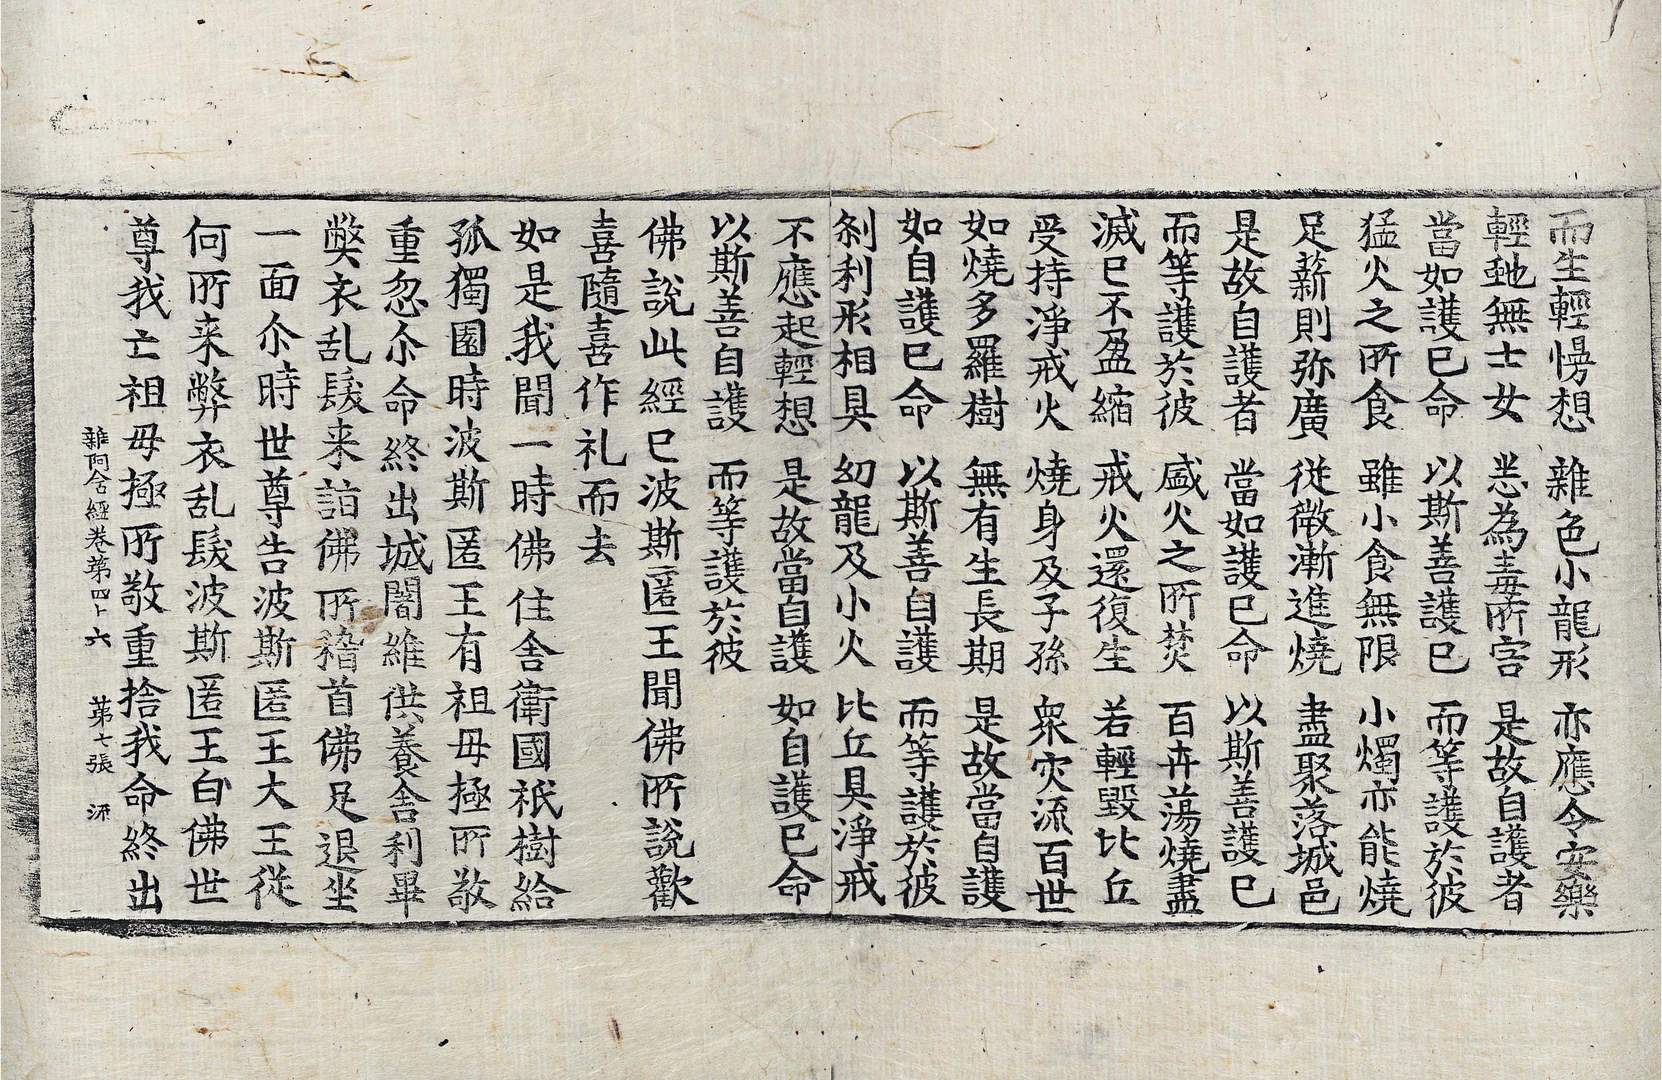 而生輕慢想 雜色小龍形 亦應令安樂
輕虵無士女 悉為毒所害 是故自護者
當如護已命 以斯善護已 而等護於彼
猛火之所食 雖小食無限 小燭亦能燒
足薪則弥廣 從微漸進燒 盡聚落城邑
是故自護者 當如護已命 以斯善護已
而等護於彼 盛火之所焚 百卉蕩燒盡
滅已不盈縮 戒火還復生 若輕毀比丘
受持淨戒火 燒身及子孫 衆灾流百世
如燒多羅樹 無有生長期 是故當自護
如自護已命 以斯善自護 而等護於彼
刹利形相具 幼龍及小火 比丘具淨戒
不應起輕想 是故當自護 如自護已命
以斯善自護 而等護於彼
佛說此經已波斯匿王聞佛所說歡
喜隨喜作礼而去
如是我聞一時佛住舍衛國祇樹給
孤獨園時波斯匿王有祖母極所敬
重忽尒命終出城闍維供養舍利畢
弊衣乱髮来詣佛所稽首佛足退坐
一面尒時世尊告波斯匿王大王從
何所来弊衣乱髮波斯匿王白佛世
尊我亡祖母極所敬重捨我命終出
雜阿含經卷第四十六 第七張 流